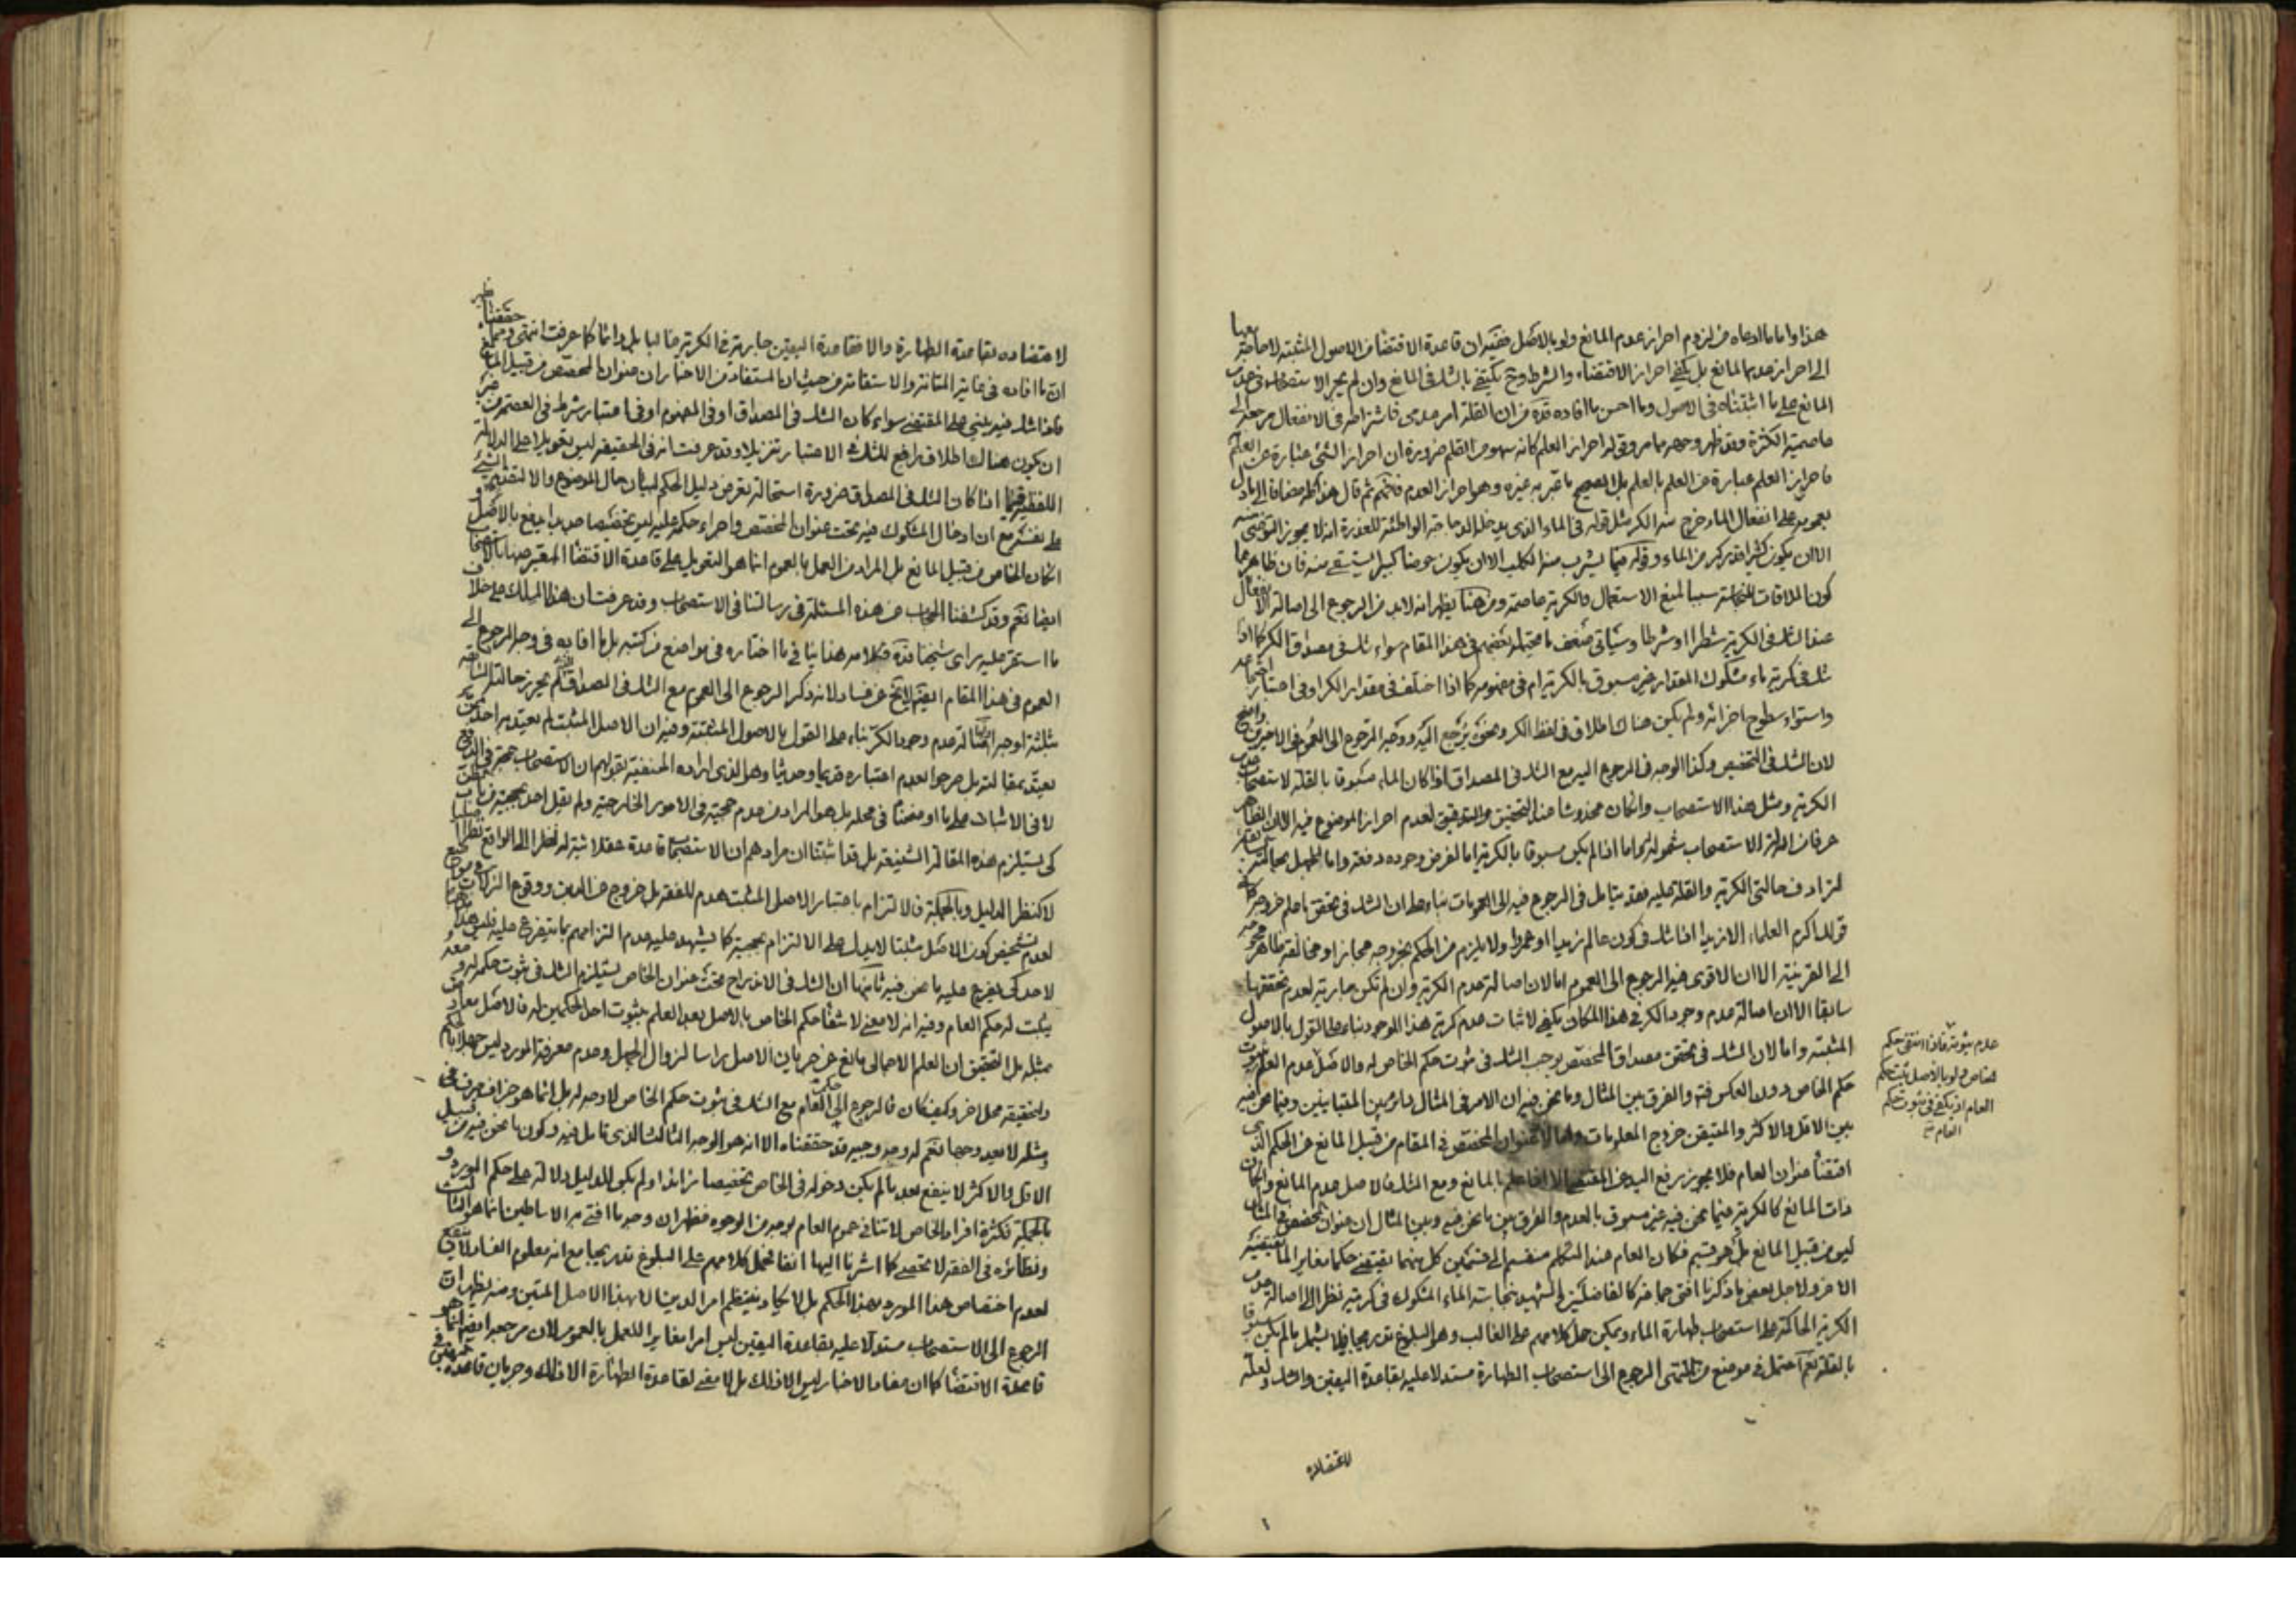 هذا واما ما ادعاه من لزوم احراز عدم المانع ولو بالاصل ففيه ان قاعدة الاقتضاء من الاصول المثبتة لا حاجة معها
الى احراز عدم المانع بل يكفى احراز الاقتضاء والشرط وح يكتفى بالشك فى المانع وان لم يجر الاستصحاب فى عدم
المانع على ما اثبتناه فى الاصول وما احسن ما افاده قده من ان القلة امر عدمى فاشتراطه فى الانفعال مرجعه الى
عاصمية الكثرة وقد ظهر وجهه مما مر وقوله احراز العلم كانه سهو من القلم ضرورة ان احراز الشئ عبارة عن العلم به
فاحراز العلم عبارة عن العلم بالعلم بل الصحيح ما عبر به غيره وهو احراز العدم فافهم ثم قال هذا كله مضافا الى ما دل
بعمومه على انفعال الماء خرج منه الكر مثل قوله فى الماء الذى يدخله الدجاجة الواطئة للعذرة انه لا يجوز التوضى منه
الا ان يكون كثيرا قدر كر من الماء وقوله فيما يشرب منه الكلب الا ان يكون حوضا كبيرا يستقى منه فان ظاهرهما
كون الملاقات للنجاسة سببا لمنع الاستعمال والكرية عاصمة ومن هنا يظهر انه لابد من الرجوع الى اصالة الانفعال
عند الشك فى الكرية شطرا او شرطا وسياتى ضعف ما يحتمله بعضهم فى هذا المقام سواء شك فى مصداق الكر كما اذا
شك فى كرية ماء مشكوك المقدار غير مسبوق بالكرية ام فى مفهومه كما اذا اختلف فى مقدار الكر او فى اعتبار اجتماعه
واستواء سطوح اجزائه ولم يكن هناك اطلاق فى لفظ الكر ونحوه يرجع اليه ووجه الرجوع الى العموم فى الاخيرين واضح
لان الشك فى التخصيص وكذا الوجه فى الرجوع اليه مع الشك فى المصداق اذا كان الماء مسبوقا بالقلة لاستصحاب عدم
الكرية ومثل هذا الاستصحاب وان كان مخدوشا عند التحقيق والتدقيق لعدم احراز الموضوع فيه الا ان الظاهر
عرفا من ادلة الاستصحاب شموله له واما اذا لم يكن مسبوقا بالكرية اما لفرض وجوده دفعة واما للجهل بحالته
لترادف حالتى الكرية والقلة عليه فقد يتامل فى الرجوع فيه الى العمومات بناء على ان الشك فى تحقق ما علم خروجه كما فى
قوله اكرم العلماء الا زيدا اذا شك فى كون عالم زيدا او عمروا ولا يلزم من الحكم بخروجه مجاز او مخالفة ظاهر محوجة
الى القرينة الا ان الاقوى فيه الرجوع الى العموم اما لان اصالة عدم الكرية وان لم تكن جارية لعدم تحققها
سابقا الا ان اصالة عدم وجود الكر فى هذا المكان يكفى لاثبات عدم كرية هذا الموجود بناء على القول بالاصول
المثبتة واما لان الشك فى تحقق مصداق المخصص يوجب الشك فى ثبوت حكم الخاص له والاصل عدم العلم ثبوت
حكم الخاص دون العكس فتم والفرق بين المثال وما نحن فيه ان الامر فى المثال دائر بين المتباينين وفيما نحن فيه
بين الاقل والاكثر والمتيقن خروج المعلومات واما لان عنوان المخصص فى المقام من قبيل المانع عن الحكم الذى
اقتضاه عنوان العام فلا يجوز رفع اليد عن المقتضى الا اذا علم بالمانع ومع الشك فالاصل عدم المانع وان كان
ذات المانع كالكرية فيما نحن فيه غير مسبوق بالعدم والفرق بين ما نحن فيه وبين المثال ان عنوان المخصص فى المثال
ليس من قبيل المانع بل هو قسيم فكان العام عند المتكلم منقسم الى قسمين كل منهما يقتضى حكما مغايرا لما يقتضيه
الاخر ولاجل بعض ما ذكرنا افتى جماعة كالفاضلين والشهيد بنجاسة الماء المشكوك فى كريته نظرا الى اصالة عدم
الكرية الحاكمة على استصحاب طهارة الماء ويمكن حمل كلامهم على الغالب وهو البلوغ تدريجا فلا يشمل ما لم يكن مسبوقا
بالقلة نعم احتمل فى موضع من المنتهى الرجوع الى استصحاب الطهارة مستدلا عليه بقاعدة اليقين والشك ولعله
لاعتضاده
عدم ثبوته فاذا انتفى حكم
الخاص ولو بالاصل ثبت حكم
العام اذ يكفى فى ثبوت حكم
العام
لاعتضاده بقاعدة الطهارة والا فقاعدة اليقين جارية فى الكرية غالبا بل دائما كما عرفت انتهى
ان ما افاده فى غاية المتانة والاستقامة من حيث ان المستفاد من الاخبار ان عنوان المخصص من قبيل المانع
فاذا شك فيه يبنى على المقتضى سواء كان الشك فى المصداق او فى المفهوم او فى اعتبار شرط فى العصمة من غير
ان يكون هناك اطلاق رافع للشك فى الاعتبار تنزيلا وقد عرفت انه فى الحقيقة ليس تعويلا على الدلالة
اللفظية فيما اذا كان الشك فى المصداق ضرورة استحالة تعرض دليل الحكم لبيان حال الموضوع والا لتقدم الشئ
على نفسه مع ان ادخال المشكوك فيه تحت عنوان المخصص واجراء حكمه عليه ليس تخصيصا جديدا يدفع بالاصل و
ان كان الخاص من قبيل المانع بل المراد من العمل بالعموم انما هو التعويل على قاعدة الاقتضاء المعبر عنها بالاستصحاب
ايضا نعم وقد كشفنا الحجاب عن هذه المسئلة فى رسالتنا فى الاستصحاب وقد عرفت ان هذا المسلك على خلاف
ما استقر عليه راى شيخنا قده فكلامه هذا ينافى ما اختاره فى مواضع من كتبه بل ما افاده فى وجه الرجوع الى
العموم فى هذا المقام ايضا لا يخ عن فساد لانه ذكر الرجوع الى العموم مع الشك فى المصداق
ثلثة اوجه اصالة عدم وجود الكر بناء على القول بالاصول المثبتة وفيه ان الاصل المثبت لم يعتد به احد ممن
يعتد بمقالته بل صرحوا بعدم اعتباره قديما وحديثا وهو الذى اراده الحنفية بقولهم ان الاستصحاب حجة فى الدفع
لا فى الاثبات على ما اوضحنا فى محله بل هو المراد من عدم حجيته فى الامور الخارجية ولم يقل احد بحجيته من باب الظن
كى يستلزم هذه المقالة الشنيعة بل قد اثبتنا ان مرادهم ان الاستصحاب قاعدة عقلائية
لا كنظر الدليل وبالجملة فالالتزام باعتبار الاصل المثبت هدم للفقه بل خروج عن الدين ووقوع النزاع
لعدم تشخيص كون الاصل مثبتا لا يدل على الالتزام بحجيته كما يشهد عليه عدم التزامهم بما يتفرع عليه
لاحد كى يفرع عليه ما نحن فيه ثانيها ان الشك فى الاندراج تحت عنوان الخاص يستلزم الشك فى ثبوت حكمه له و
يثبت له حكم العام وفيه انه لا معنى لانتفاء حكم الخاص بالاصل بعد العلم بثبوت احد الحكمين له فالاصل معارض
بمثله بل التحقيق ان العلم الاجمالى مانع عن جريان الاصل راسا لزوال الجهل وعدم معرفة المورد ليس جهلا بالحكم
والحقيقة محل اخر وكيف كان فالرجوع الى حكم العام مع الشك فى ثبوت حكم الخاص لا وجه له بل انما هو جزاف
ومثله لا يعد وجها نعم له وجه وجيه قد حققناه الا انه هو الوجه الثالث الذى تامل فيه وكون ما نحن فيه من قبيل
الاقل والاكثر لا ينفع بعد ما لم يكن دخوله فى الخاص تخصيصا زائدا ولم يكن للدليل دلالة على حكم المورد و
بالجملة فكثرة افراد الخاص لا تنافى عموم العام بوجه من الوجوه فظهر ان وجه ما افتى به الاساطين انما هو الثالث
ونظائره فى الفقه لا تحصى كما اشرنا اليها انفا فحمل كلامهم على البلوغ تدريجا مع انه معلوم الفساد لا ينفع
لعدم اختصاص هذا المورد بهذا الحكم بل لا يكاد ينتظم امر الدين الا بهذا الاصل المتين ومنه يظهر ان
الرجوع الى الاستصحاب مستدلا عليه بقاعدة اليقين ليس امرا مغايرا للعمل بالعموم لان مرجعه ايضا انما هو
قاعدة الاقتضاء كما ان مفاد الاخبار ليس الا ذلك بل لا معنى لقاعدة الطهارة الا ذلك وجريان قاعدة